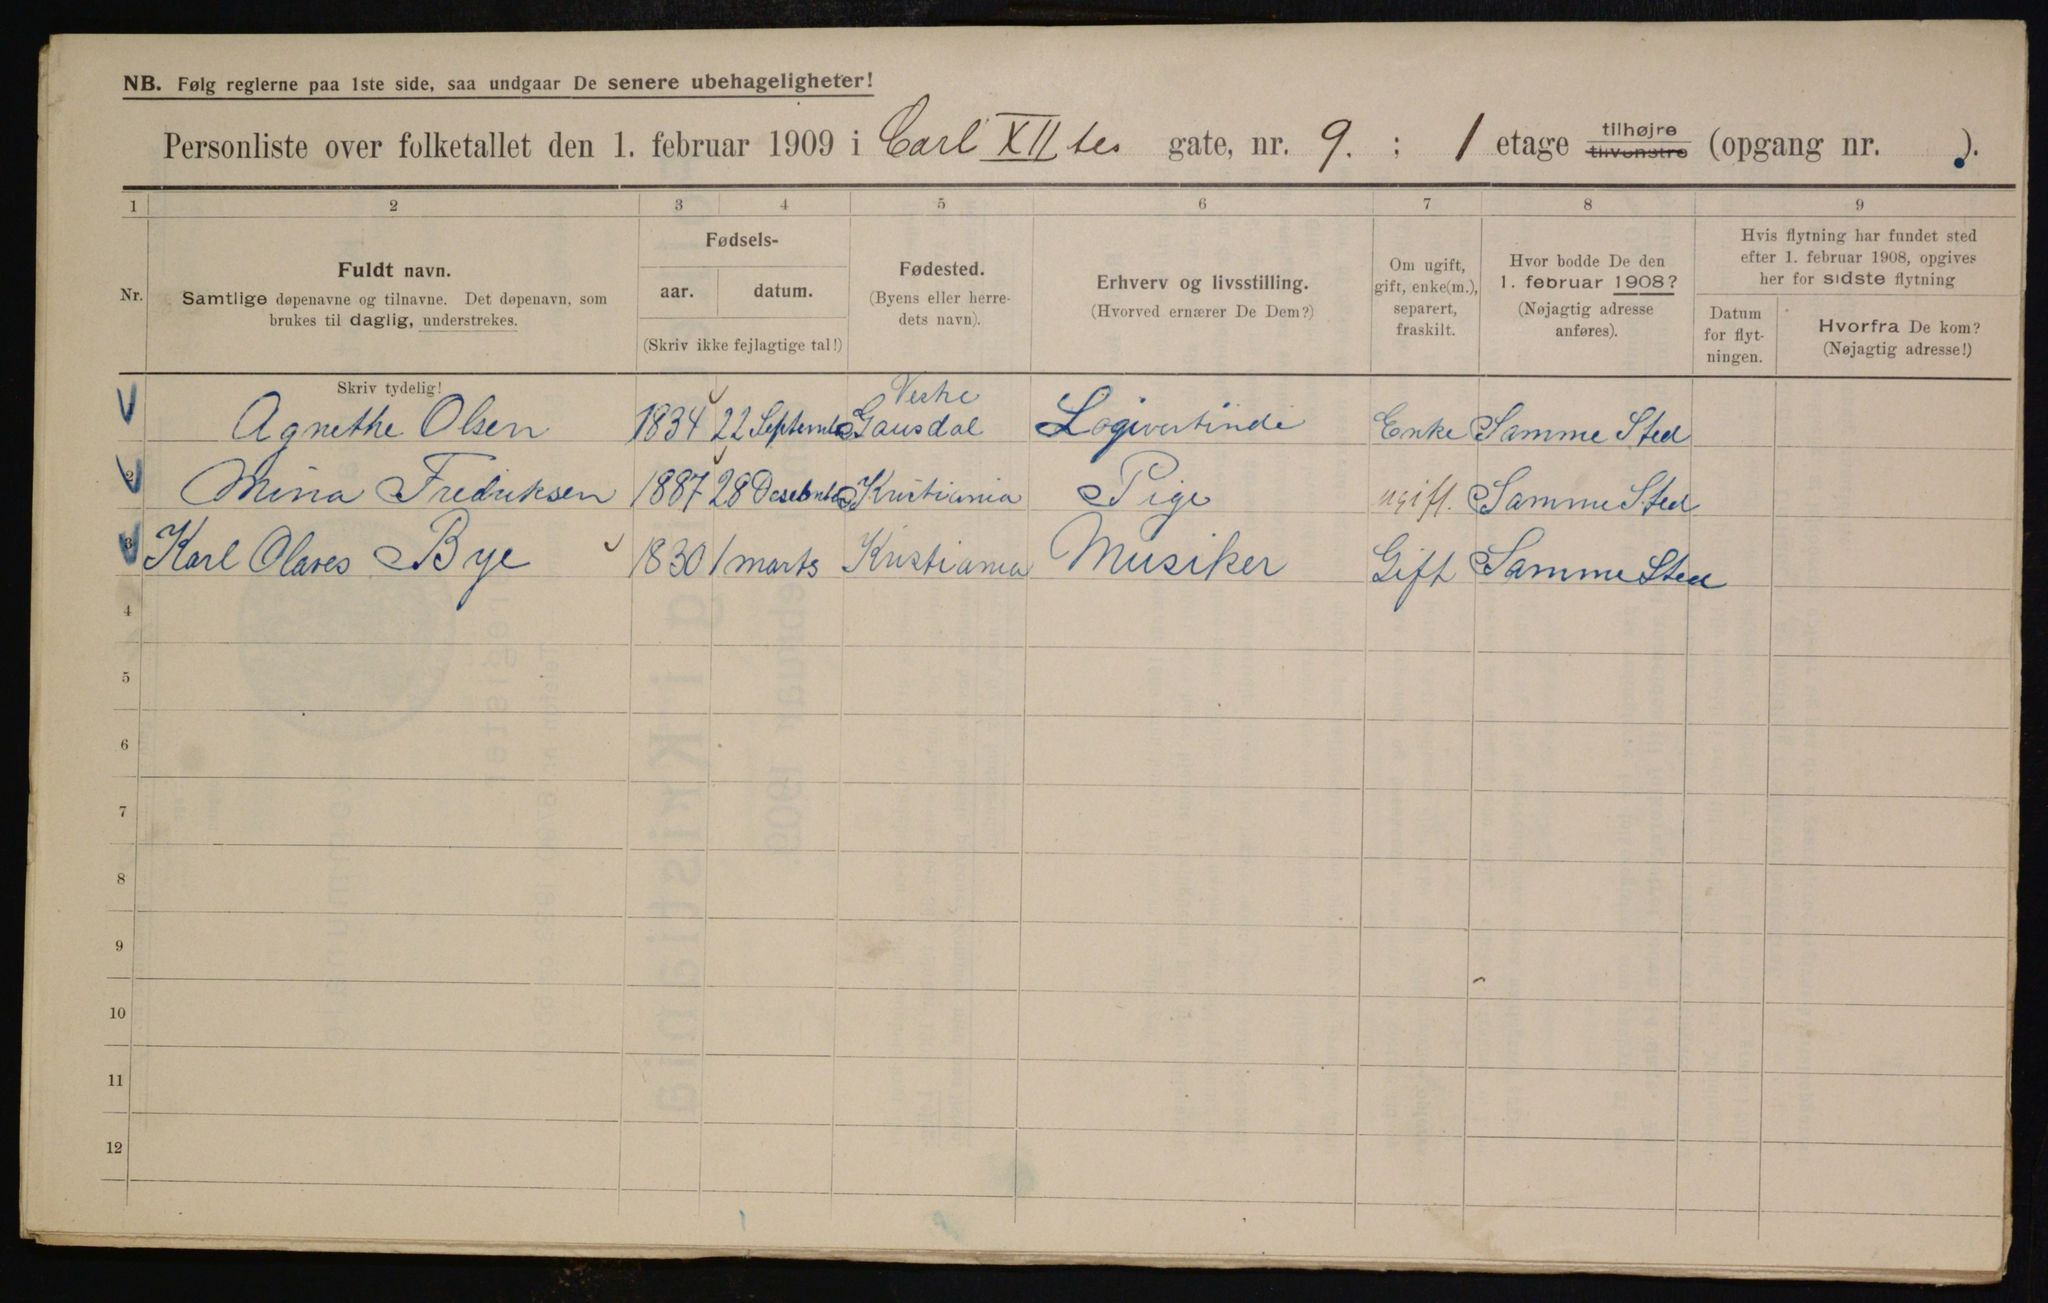 NB. Følg reglerne paa 1ste side, saa undgaar De senere ubehageligheter!
Personliste over folketallet den 1. februar 1909 i Carl XII tes gate, nr. 9. ; 1 etage tilhøjre tilvenstre (opgang nr. ).
1 2 3 4 5 6 7 8 9
Nr.
Fuldt navn.
Samtlige døpenavne og tilnavne. Det døpenavn, som
brukes til daglig, understrekes.
Skriv tydelig!
Fødsels-
aar. datum.
(Skriv ikke fejlagtige tal!)
Fødested.
(Byens eller herre-
dets navn).
Erhverv og livsstilling.
(Hvorved ernærer De Dem?)
Om ugift,
gift, enke(m.),
separert,
fraskilt.
Hvor bodde De den
1. februar 1908?
(Nøjagtig adresse
anføres).
Hvis flytning har fundet sted
efter 1. februar 1908, opgives
her for sidste flytning
Datum
for flyt-
ningen.
Hvorfra De kom?
(Nøjagtig adresse!)
Agnethe Olsen 1834 22 September Vestre Gausdal Logivertinde Enke Samme Sted
2 Mina Fredriksen 1887 28 Desember Kristiania Pige ugift. Samme Sted
3 Karl Olaves Bye 1830 1 marts Kristiania Musiker Gift Samme Sted
4
5
6
7
8
9
10
11
12